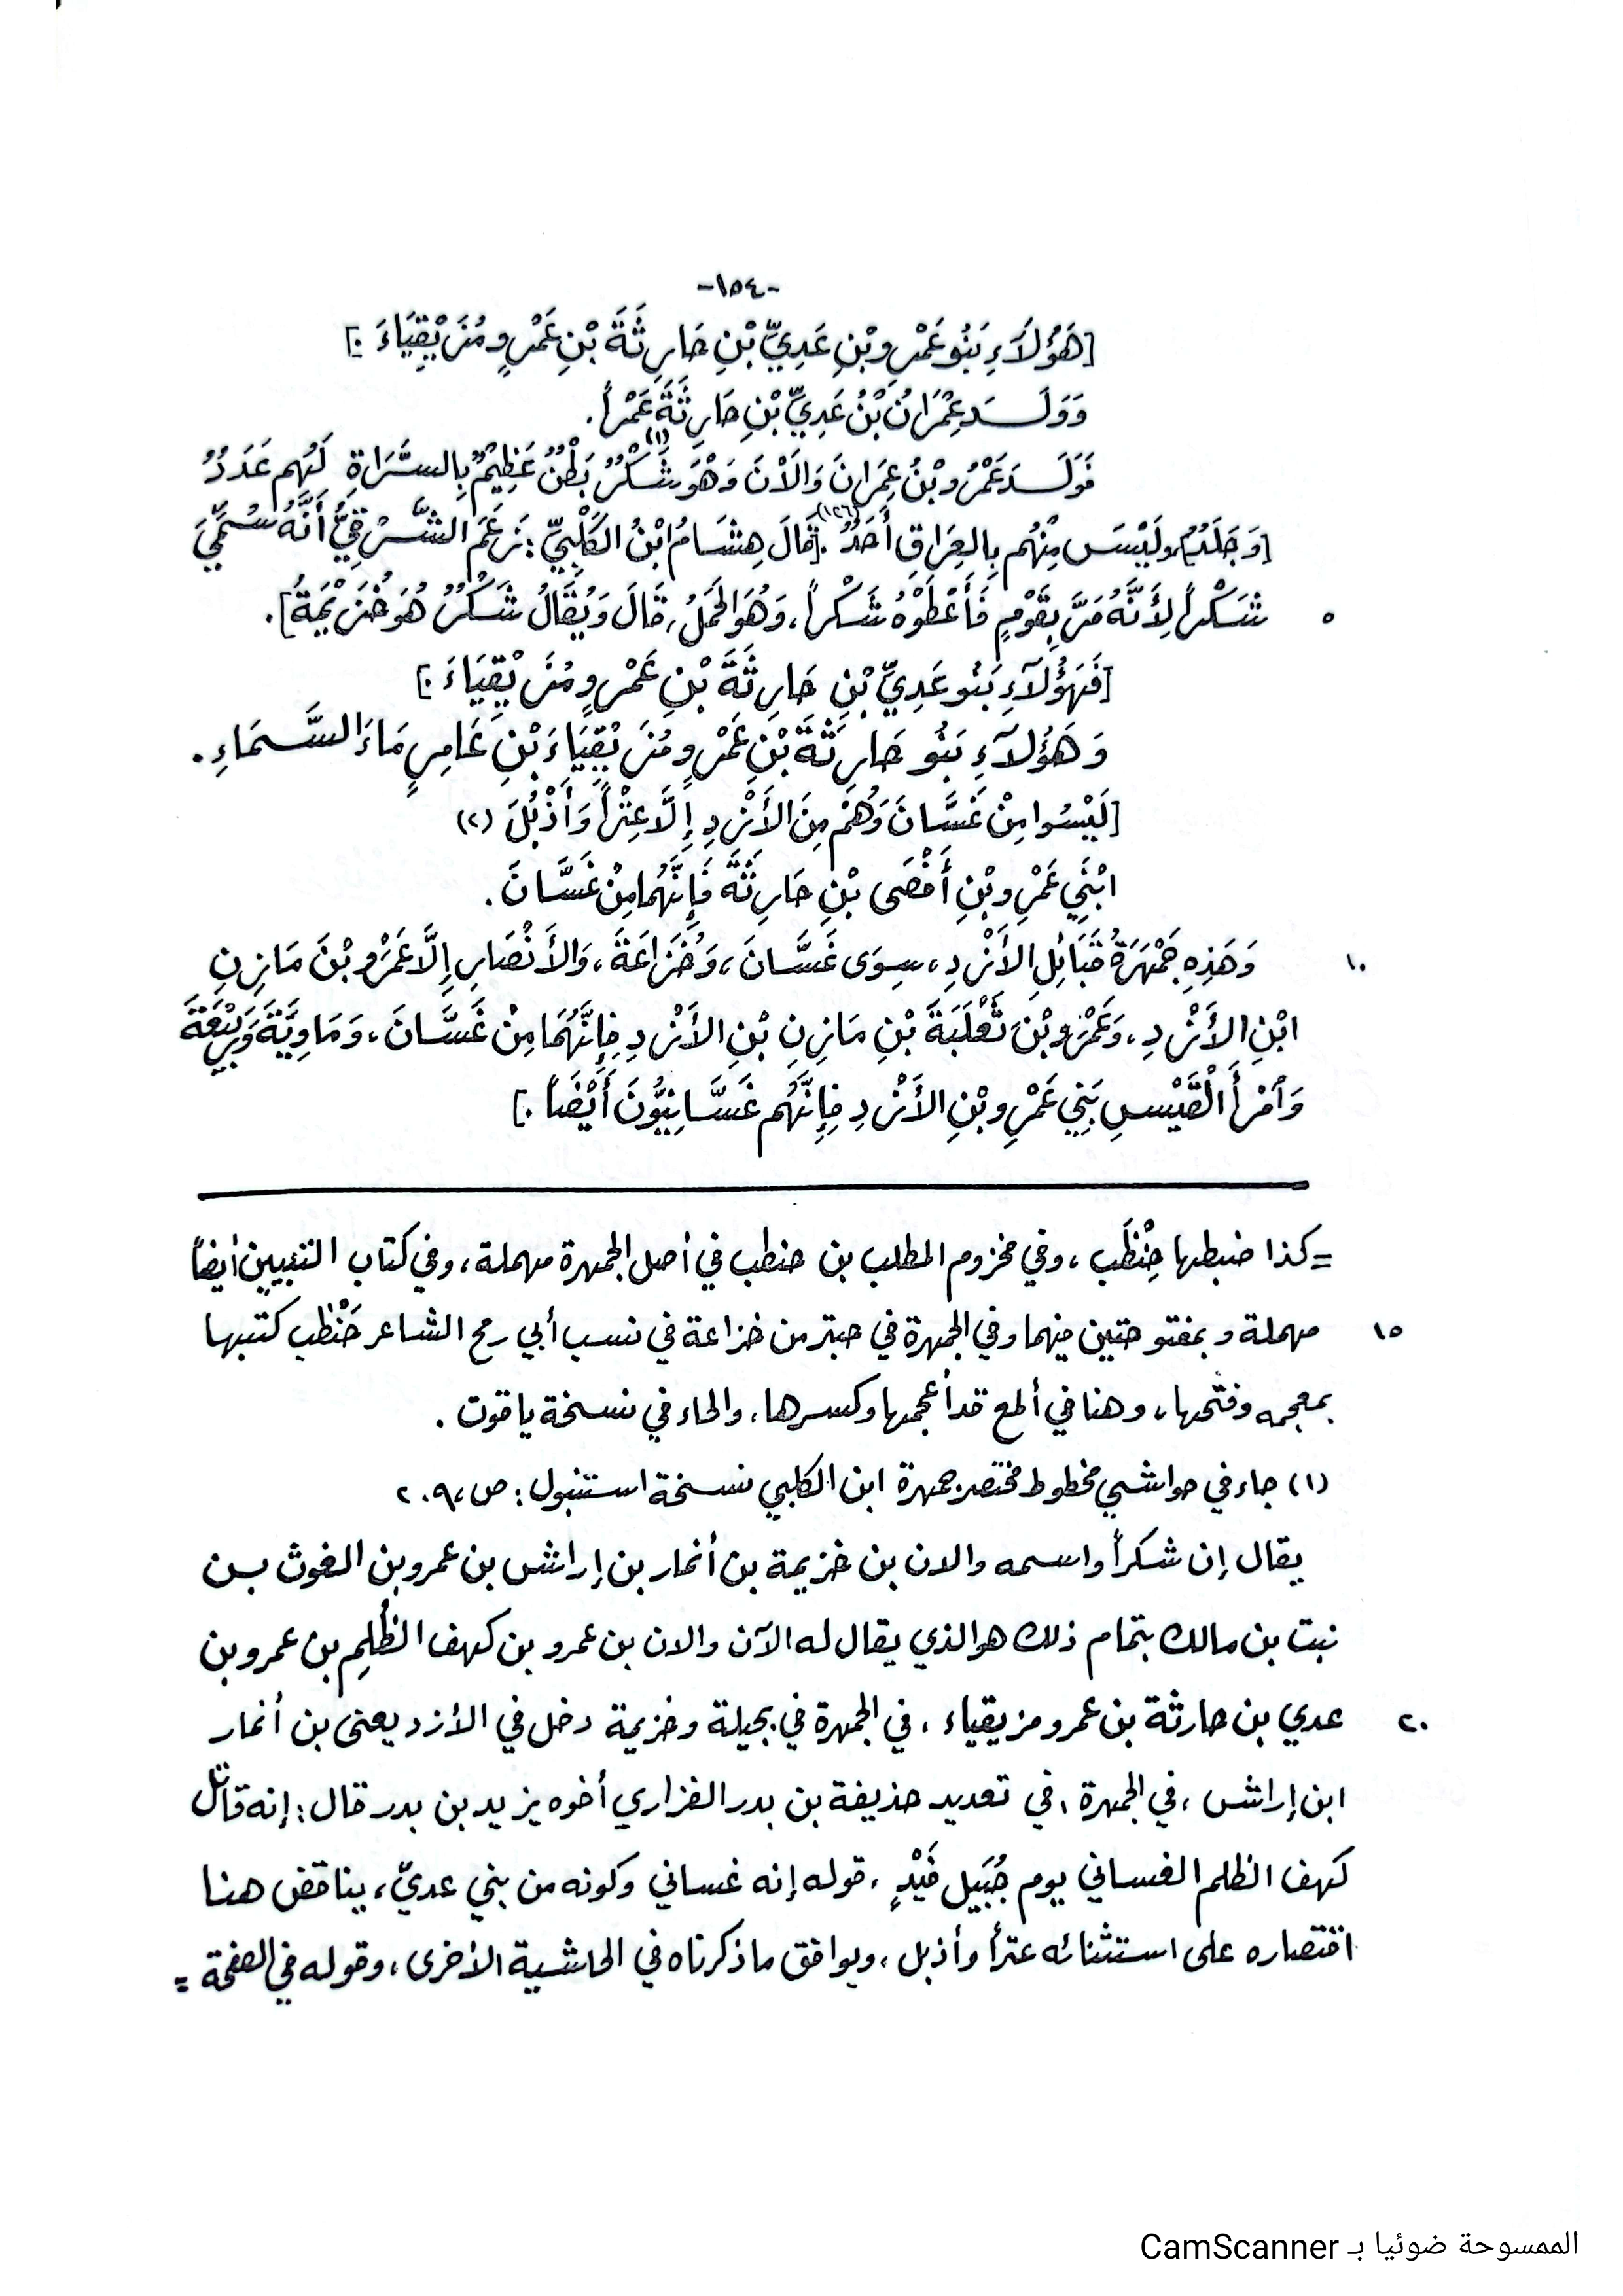 -١٥٤-
[هَؤُلَاءِ بَنُو عَمْرِو بْنِ عَدِيِّ بْنِ حَارِثَةَ بْنِ عَمْرٍو مُزَيْقِيَاءَ.]
وَوَلَدَ عِمْرَانُ بْنُ عَدِيِّ بْنِ حَارِثَةَ عَمْراً.
فَوَلَدَ عَمْرُو بْنُ عِمَرانَ وَالَانَ وَهْوَ شَكْرٌ (١) بَطْنٌ عَظِيمٌ بِالسَّرَاةِ لَهُم عَدَدٌ
[وَجَلَدٌ] وَلَيْسَ مِنْهُم بِالعِرَاقِ أَحَدٌ. (١٢٦) [قَالَ هِشَامُ ابْنُ الكَلْبِيِّ: زَعَمَ الشَّرْقِيُّ أَنَّهُ سُمِّيَ
٥ شَكْراً لِأَنَّهُ مَرَّ بِقَوْمٍ فَأَعْطَوْهُ شَكْراً، وَهُوَ الحَمَلُ، قَالَ وَيُقَالُ شَكْرٌ هُوَ خُزَيْمَةُ].
[فَهَؤُلَآءِ بَنُو عَدِيِّ بْنِ حَارِثَةَ بْنِ عَمْرٍو مُزَيْقِيَاءَ.]
وَهَؤُلآءِ بَنُو حَارِثَةَ بْنِ عَمْرٍو مُزَيْقِيَاءَ بْنِ عَامِرٍ مَاءَ السَّمَاءِ.
[لَيْسُوا مِنْ غَسَّانَ وَهُمْ مِنَ الأَزْدِ إِلَّا عِتْراً وَأَذْبُلَ (٢)
ابْنَي عَمْرِو بْنِ أَفْصَى بْنِ حَارِثَةَ فَإِنَّهُمَا مِنْ غَسَّانَ.
١٠ وَهَذِهِ جَمْهَرَةُ قَبَائِلِ الأَزْدِ، سِوَى غَسَّانَ، وَخُزَاعَةَ، وَالأَنْصَارِ إِلَّا عَمْرَو بْنَ مَازِنِ
ابْنِ الأَزْدِ، وَعَمْرَو بْنَ ثَعْلَبَةَ بْنِ مَازِنِ بْنِ الأَزْدِ فإِنَّهُمَا مِنْ غَسَّانَ، وَمَاوِيَّةَ وَرَبِيْعَةَ
وَآمْرَأَ الْقَيْسِ بَنِي عَمْرِو بْنِ الأَزْدِ فإِنَّهُم غَسَّانِيُّونَ أَيْضَاً.]
= كذا ضبطها حِنْظَب، وفي مخزوم المطلب بن حنطب في أصل الجمهرة مهملة، وفي كتاب التبيين أيضاً
١٥ مهملة وبمفتوحتين فيهما وفي الجمهرة في حبتر من خزاعة في نسب أبي رمح الشاعر حَنْظب كتبها
بمعجمه وفتحها، وهنا في ألمع قد أعجمها وكسرها، والحاء في نسخة ياقوت.
(١) جاء في حواشي مخطوط مختصر جمهرة ابن الكلبي نسخة استنبول: ص، ٢٠٩
يقال إن شكراً واسمه والان بن خزيمة بن أنمار بن إراش بن عمرو بن الغوث بـن
نبت بن مالك بتمام ذلك هو الذي يقال له الآن والان بن عمرو بن كهف الظُلِم بن عمرو بن
٢٠ عدي بن حارثة بن عمرو مزيقياء، في الجمهرة في بجيلة وخزيمة دخل في الأزد يعني بن أنمار
ابن إراش، في الجمهرة، في تعديد حذيفة بن بدر الفزاري أخوه يزيد بن بدر قال: إنه قاتل
كهف الظلم الغساني يوم جُبَيل فَيْدٍ، قوله إنه غساني وكونه من بني عديّ، يناقض هنا
اقتصاره على استثنائه عتراً وأذبل، ويوافق ما ذكرناه في الحاشية الأخرى، وقوله في الصفحة =
الممسوحة ضوئيا بـ CamScanner